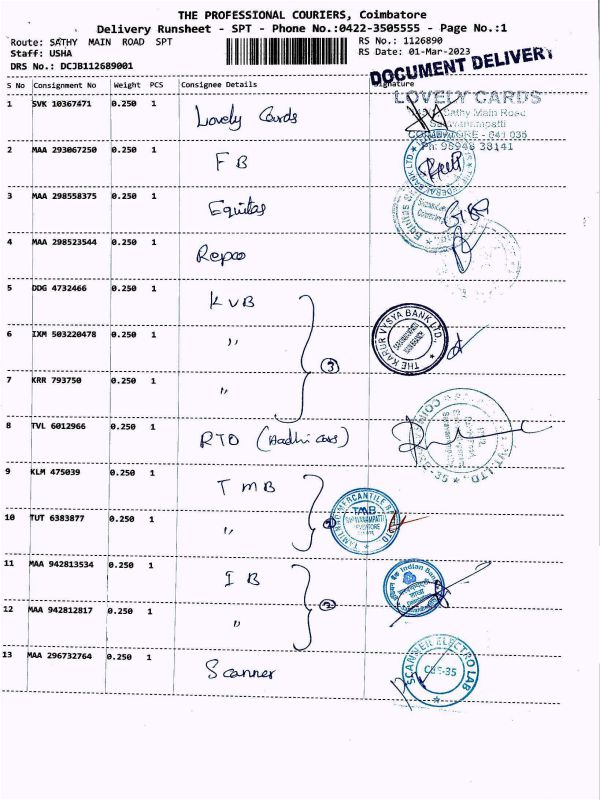 THE PROFESSIONAL COURIERS, Coimbatore
Delivery Runsheet - SPT - Phone No.:0422-3505555 - Page No.:1
Route: SATHY MAIN ROAD SPT
RS No.: 1126890
Staff: USHA
RS Date: 01-Mar-2023
DRS No.: DCJB112689001
DOCUMENT DELIVERY
S No Consignment No Weight PCS Consignee Details Signature
1 SVK 10367471 0.250 1 Lovely Cards
LOVELY CARDS
Sathy Main Road
COIMBATORE - 641 035
Ph: 98948 38141
2 MAA 293067250 0.250 1 FB
3 MAA 298558375 0.250 1 Equitas
4 MAA 298523544 0.250 1 Repco
5 DDG 4732466 0.250 1 KVB
6 IXM 503220478 0.250 1 "
THE KARUR VYSYA BANK LTD.
3
7 KRR 793750 0.250 1 "
8 TVL 6012966 0.250 1 RTO (Aadhi cars)
9 KLM 475039 0.250 1 TMB
TAMILNAD MERCANTILE BANK LTD
TMB
10 TUT 6383877 0.250 1 "
2
11 MAA 942813534 0.250 1 IB
Indian Bank
12 MAA 942812817 0.250 1 "
2
13 MAA 296732764 0.250 1 Scanner
SCANNER ELECTRO LAB
CBE-35